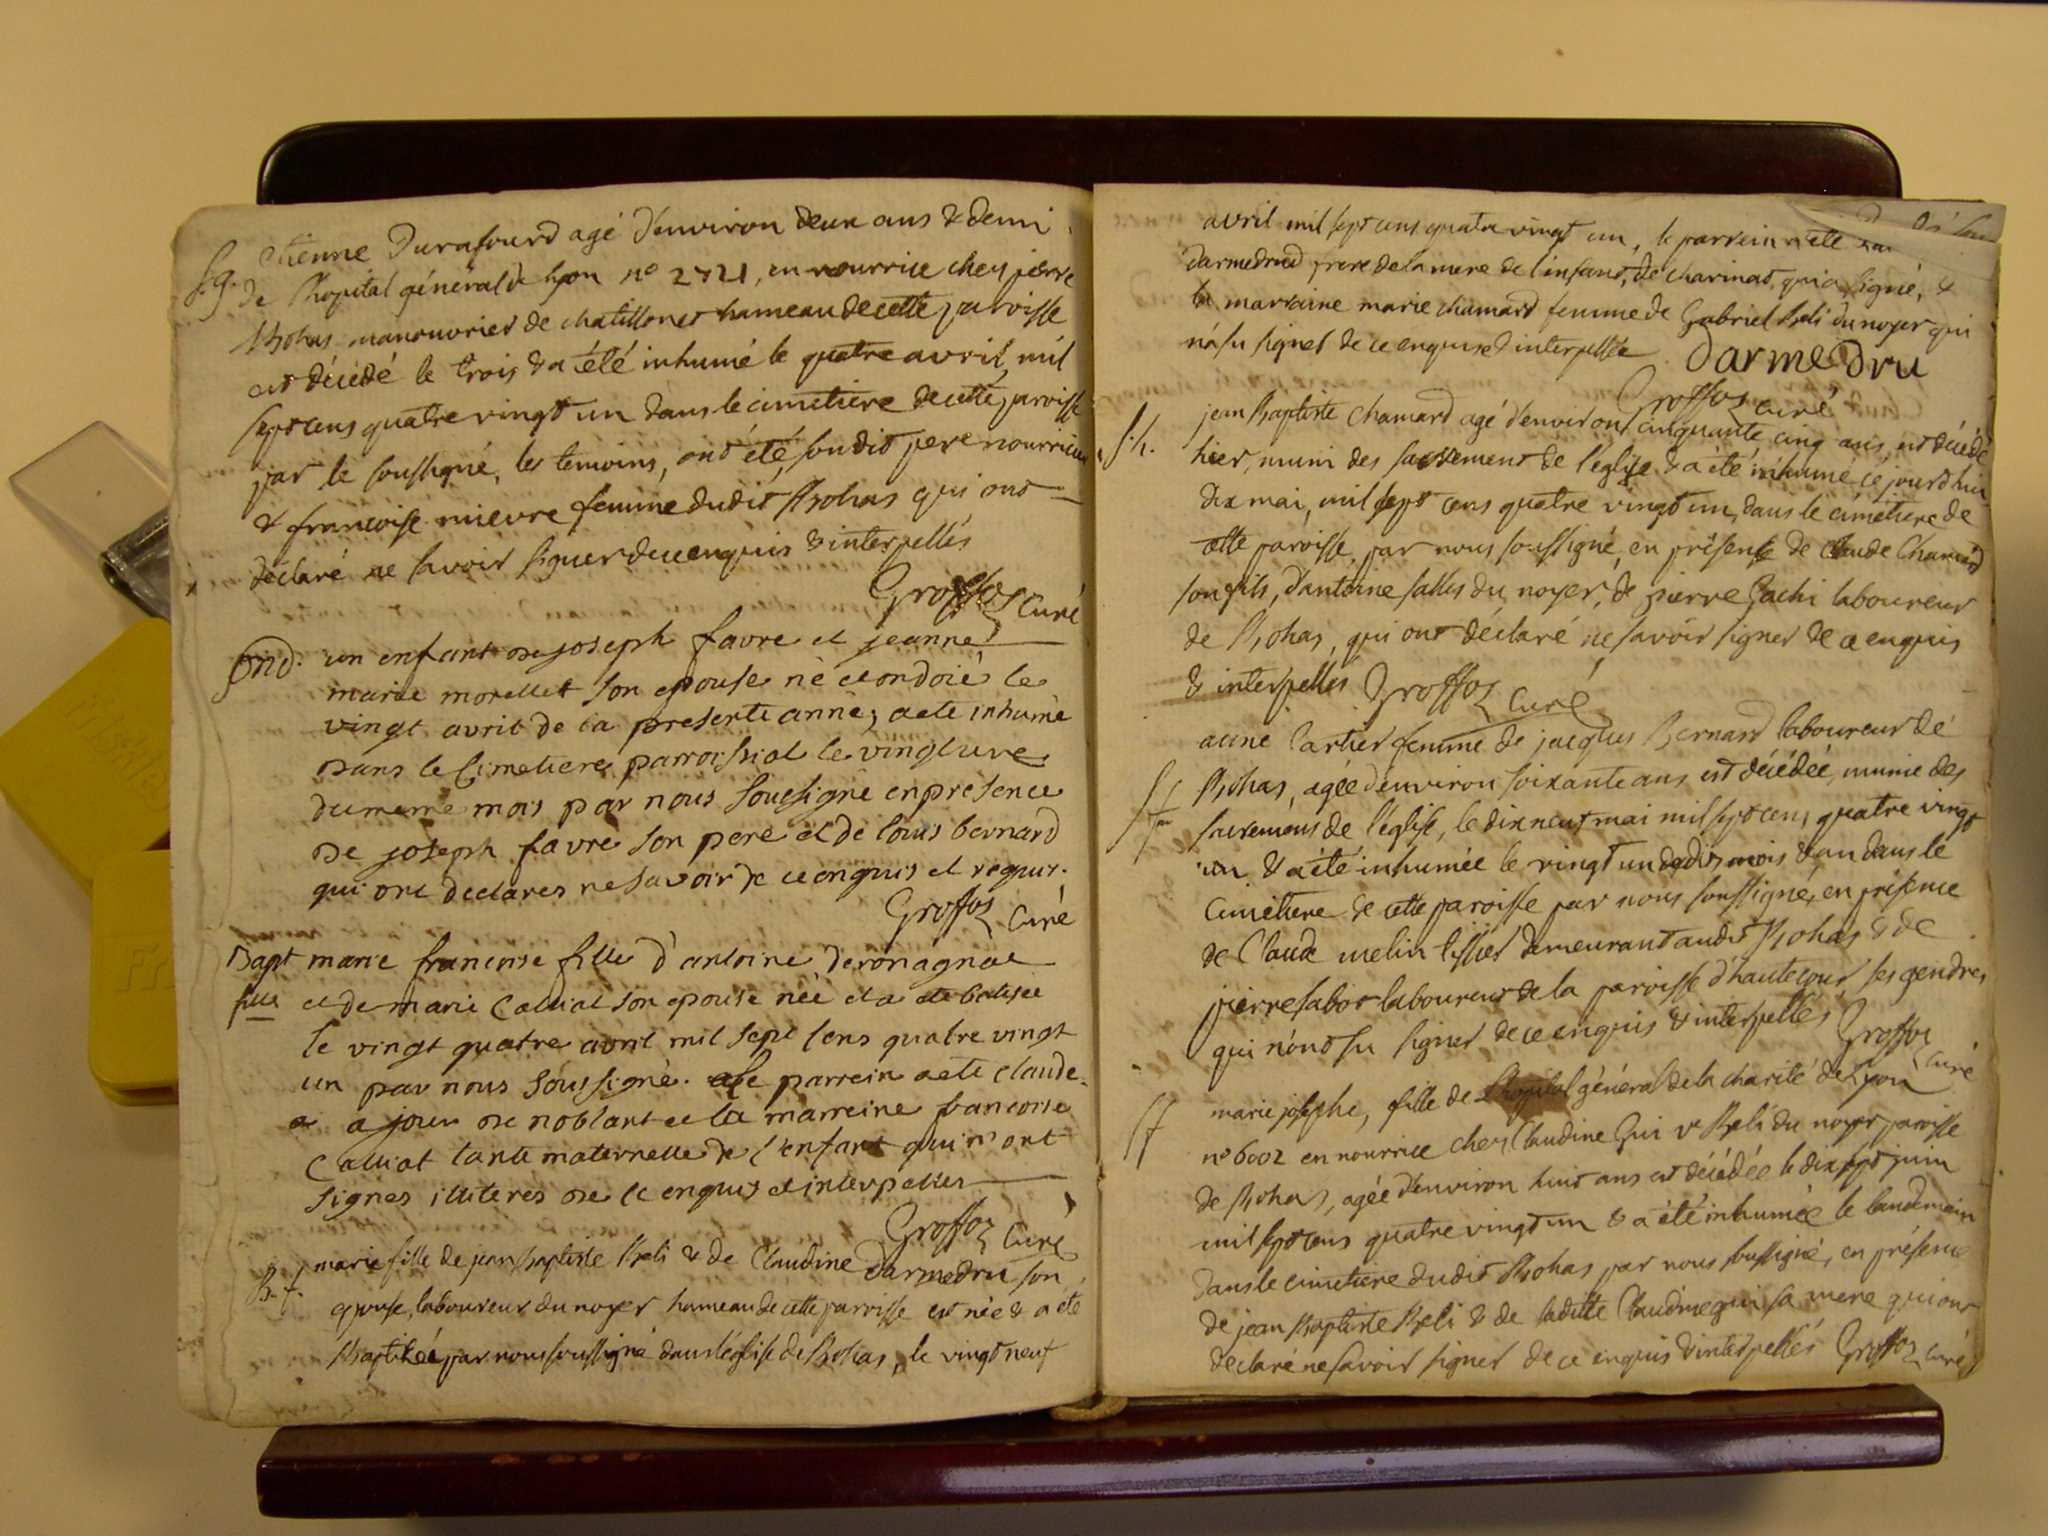 S.g. étienne Durafourd agé d'environ deux ans & demi
de l'hopital général de lyon n° 2721, en nourrice chez pierre
Bohas manouvrier de chatillonet hameau de cette paroisse
est décédé le trois & a été inhumé le quatre avril, mil
sept cens quatre vingt un dans le cimetiere de cette paroisse
par le soussigné, les temoins, ont été, son dit pere nourricier
& francoise mievre femme dudit Bohas qui ont
déclaré ne savoir signer de ce enquis & interpellés
Groffoz Curé
Ond. un enfant de joseph favre et jeanne
marie morellet son epouse nè et ondoié le
vingt avril de la presente anné, a ete inhumé
dans le Cimetiere parroissial le vingt une
du meme mois par nous sousigné en presence
de joseph favre son pere et de louis bernard
qui ont declarés ne savoir de ce enquis et requis.
Groffoz Curé
Bapt marie francoise fille d'antoine deronagnat
fille et de marie Calliat son epouse née et a ete batisée
le vingt quatre avril mil sept cens quatre vingt
un par nous soussigné. Le parrein a ete claude
a ajoux de noblant et la marreine francoise
Calliat tante maternelle de l'enfant qui n'ont
signés illiterés de ce enquis et interpellés
Groffoz Curé
B. f. marie fille de jean Baptiste Beli & de Claudine Darmedru son
epouse, laboureur du noyer hameau de cette paroisse est née & a été
Baptisée par nous soussigné dans l'église de Bohas, le vingt neuf
avril mil sept cens quatre vingt un, le parrein a été
darmedrud frere de la mere de l'enfant, de charinat, qui a signé, &
la marraine marie chamard femme de Gabriel Beli du noyer qui
n'a su signer de ce enquise & interpellée Darmedru
Groffoz Curé
S. h. jean Baptiste Chamard agé d'environ cinquante cinq ans, est décédé
hier, muni des sacrements de l'église & a été inhumé ce jourd'hui
dix mai, mil sept cens quatre vingt un, dans le cimetiere de
cette paroisse, par nous soussigné, en présence de Claude Chamard
son fils, d'antoine salles du noyer, & pierre Gachi laboureur
de Bohas, qui ont déclaré ne savoir signer de ce enquis
& interpellés Groffoz Curé
anne Cartier femme de jacques Bernard laboureur de
Bohas, agée d'environ soixante ans est décédée, munie des
sacremens de l'église, le dix neuf mai mil sept cens quatre vingt
un & a été inhumée le vingt un dudit mois & an dans le
cimetiere de cette paroisse par nous soussigné, en présence
de Claude melin tissier demeurant audit Bohas & de
pierre sabot laboureur de la paroisse d'hautecour ses gendres
qui n'ont su signer de ce enquis & interpellés Groffoz
Curé
S f marie josephe, fille de l'hopital général de la charité de Lyon
n° 6002 en nourrice chez Claudine Gui ve Beli du noyer paroisse
de Bohas, agée d'environ huit ans est décédée le dix sept juin
mil sept cens quatre vingt un & a été inhumée le landemain
dans le cimetiere dudit Bohas par nous soussigné, en présence
de jean Baptiste Beli & de ladite Claudine gui sa mere qui ont
declaré ne savoir signer de ce enquis & interpellés Groffoz Curé